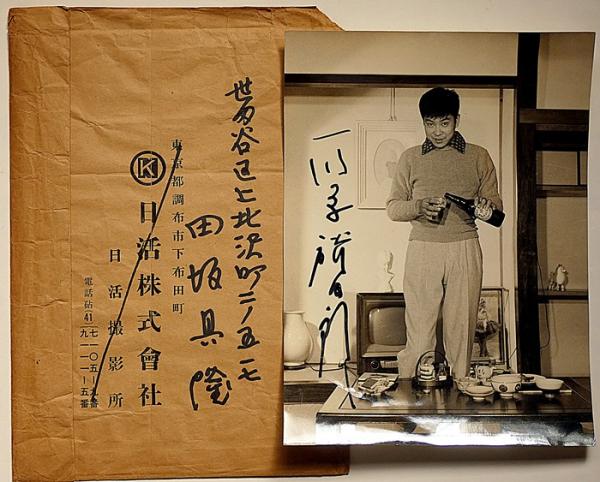 世田谷区上北沢町二ノ五一七
田坂具隆
東京都調布市下布田町
K
日活株式會社
日活撮影所
電話砧(41)七一〇五—九番
九一一一—五番
石原裕次郎